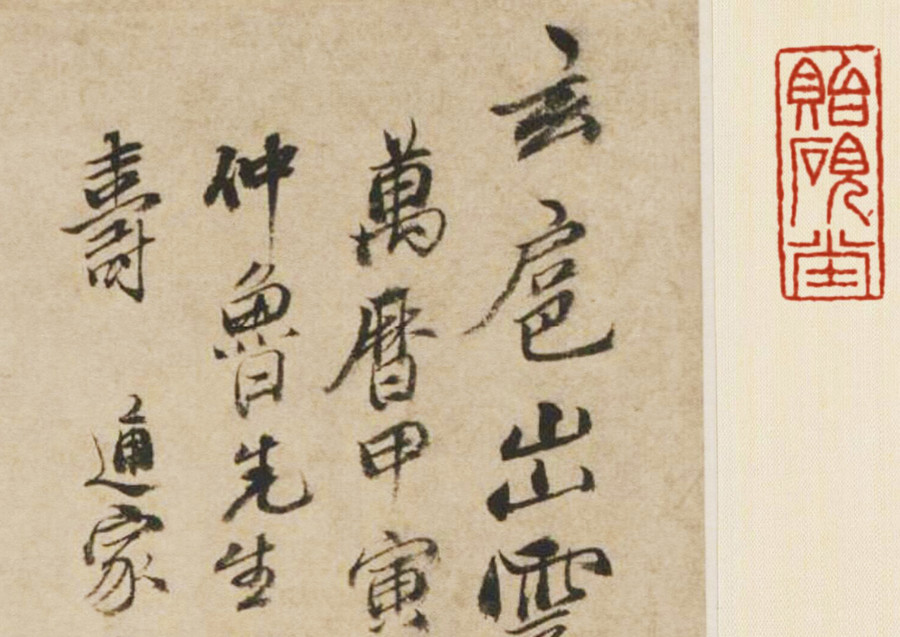 貽硯堂
玄扈山雲
萬曆甲寅
仲魯先生
壽 通家